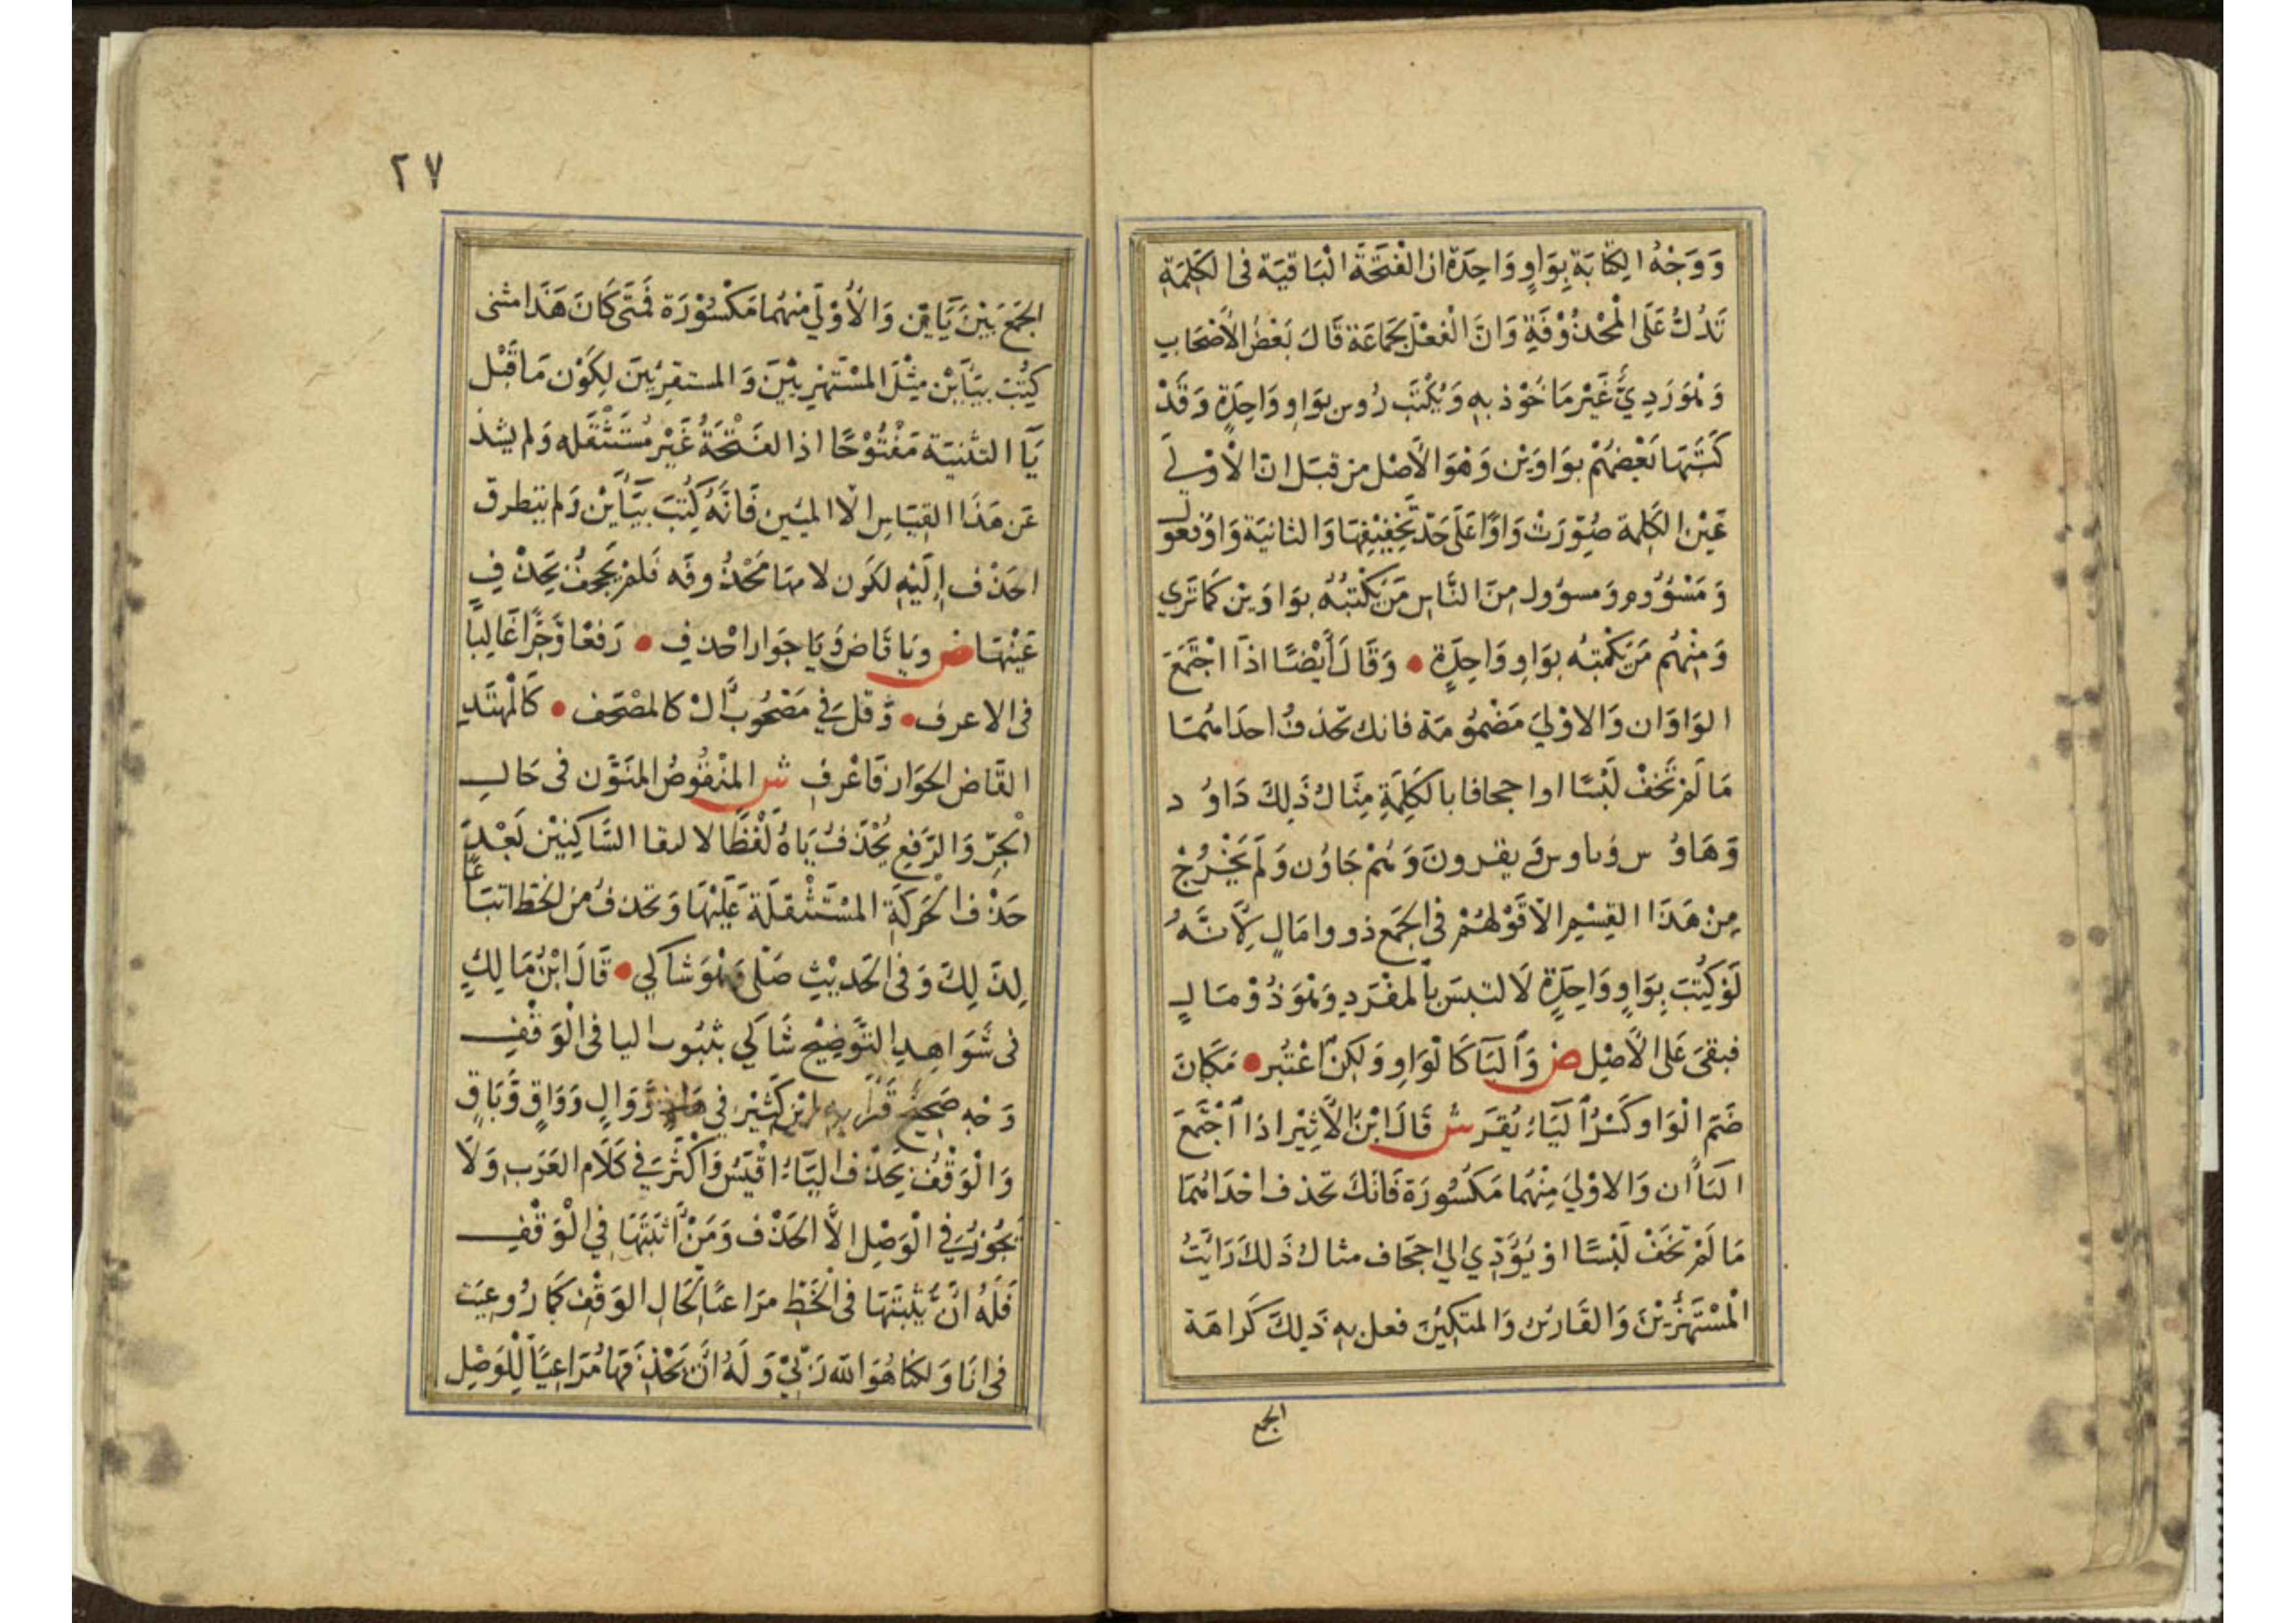 وَوَجْهُ الِكتَابَةِ بِوَاوٍ وَاحِدَة ان الْفَتَحَةَ الْبَاقِيَة فى الكَلِمَةِ
تَدُلُّ عَلَى الْمحْذُوْفَةِ وَانَّ الْفِعْلَ لِجَمَاعَة قَالَ بَعْضُ الأَصْحَابِ
وَهْوَ رَدِيٌّ غَيْر مَاخُوْذ بهِ وَيُكْتَب رُوس بوَاوٍ وَاحِدَةٍ وَقَدْ
كَتَبَهَا بَعْضُهُمْ بوَاوَيْن وَهْوَ الأَصْل من قبَل انّ الأُوْلى
عَيْن الكَلِمة صُوِّرَتْ وَاوًا عَلَى حَدّ تَخْفِيْفِهَا وَالثانيَة وَاوُ فعُول
وَمَسْؤُوم وَمسؤُول مِنَ النَّاسِ مَنْ يَكْتبُهُ بوَاوَيْن كَمَا تَرَي
وَمِنْهُم مَنْ يَكْتبُه بوَاوٍ وَاحِدَةٍ • وَقَالَ أَيْضًا اذَا اجْتَمَعَ
الوَاوَان وَالاوْلىَ مَضْمُوْمَة فانك تحْذفُ احدَاهُمَا
مَا لَمْ تَخَفْ لَبْسًا اوا جحافا بالكَلِمَةِ مِثَالُ ذَلِكَ دَاوُ د
وَهَاوُ س وَيقرونَ وَهُمْ جَاوُن وَلَمْ يَخْرُجْ
مِنْ هَذَا القِسْمِ الاّ قَوْلهُمْ فى الجَمْع ذووا مَالٍ لِأَنَّهُ
لَوْ كُتِبَ بِوَاوٍ وَاحِدَةٍ لَا لتبسَ بالمفْرَدِ وَهْوَ ذُوْ مَالٍ
فبقىَ عَلى الأَصْلِ ض وَاليَآ كَالْوَاوِ وَلكِنْ اعْتُبر • مَكَانَ
ضَمّ الْوَاوِ كَسْرُ اليَاءِ يُقَرَ ش قَالَ ابْنُ الأَثِيْر اذا اجْتَمَعَ
اليَاأن وَالاوْليَ مِنْهُمَا مَكسُورَة فَانكَ تحْذف احْدَاهُمَا
مَا لَمْ تخَفْ لَبْسًا اوْ يُؤَدّي الي اجحَاف مثالُ ذَلكَ رَايْتُ
الْمُسْتَهْزِئينَ وَالقَارئين وَالمتكِئِين فعل بهِ ذَلِكَ كَرَاهَة
الجمع
٢٧
الجَمْع بَيْنَ يَايَيْن وَالأُوْلَي مِنْهُمَا مَكْسُوْرَة فَمَتَى كَانَ هَذَا مثنى
كُتِبَ بيَايَيْن مِثْلَ المسْتَهْزِءيْنِ وَالمستقرِئينَ لِكَوْنِ مَا قَبْل
يَآ التثنيَة مَفْتُوْحًا اذ الفَتْحَةُ غَيْر مُسْتَثْقَله وَلم يشذ
عَن هَذَا القِيَاسِ الّا الميين فَانَّهُ كُتِبَ بيَايَيْن وَلم يتطرق
الحَذْف إِلَيْهِ لكَون لامها مَحْذُوفَه فَلَمْ يجحف بحَذْفِ
عَيْنهَا ض وَيَا قَاض وَيَا جوَار احْذفِ • رَفعًا وَجَرًّا غَالِبًا
فى الاعرف • وَقلَ في مَصْحُوب الْ كالمصْحَف • كَالْمهتَدِ
القَاض الجوَار فَاعْرفِ ش المنْقُوصُ المنَوَّن فى حَالِ
الْجَرِّ وَالرَّفع يُحْذَفُ يَاهُ لَفْظًا لالتقا السَّاكِنيْن بَعْدَ
حَذْف الْحَرَكَةِ المسْتَثْقلَة عَلَيْهَا وَتحذفُ من الخَطِّ اتبَاعًا
لِذَلِكَ وَفى الحَديْثِ صَلّى وَهْوَ شاكي • قَالَ ابْنُ مَالِكٍ
فى شَوَاهِدِ التَّوْضِيْح شَاكي بثبُوت اليا فى الْوَقْفِ
وَجْه صَحِيْحٌ قَرَأ بهِ ابْن كَثِيْر في هَادٍ وَوَالٍ وَوَاقٍ وَبَاقٍ
وَالْوَقْفُ بحَذْف اليَاءِ اقْيَسُ وَاكْثَرَ في كَلَام العَرَب وَلَا
يَجُوْزُ في الْوَصْلِ الاَّ الحَذْف وَمَنْ اثبَتَهَا فِي الْوَقْفِ
فَلَهُ انْ يُثْبتَهَا فى الْخَطِّ مرَاعيًا لحَالِ الوَقْفِ كَمَا رُوعِيَت
في انَا وَلكنا هُوَ الله رَبّي وَلَهُ انْ يحْذفَهَا مُرَاعِيًا لِلْوَصْلِ